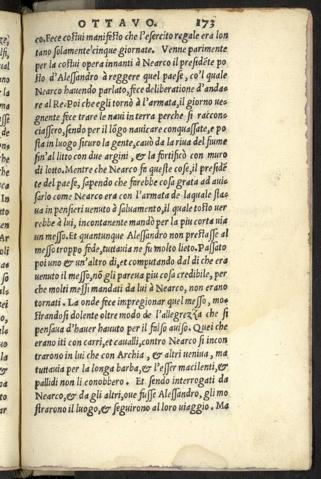 OTTAVO. 173
co, Fece costui manifesto che l'esercito regale era lon
tano solamente cinque giornate. Venne parimente
per la costui opera innanti à Nearco il presidẽte po
sto d'Alessandro à reggere quel paese, co'l quale
Nearco havendo parlato, fece deliberatione d'anda-
re al Re. Poi che egli tornò à l'armata, il giorno ue-
gnente fece trare le naui in terra perche si raccon-
ciassero, sendo per il lõgo nauicare conquassate, e po
sta in luogo sicuro la gente, cauò da la riua del fiume
fin'al litto con due argini, & la fortificò con muro
di lotto. Mentre che Nearco fà queste cose, il presidẽ
te del paese, sapendo che farebbe cosa grata ad aui-
sarlo come Nearco era con l'armata de laquale sta-
ua in pensieri uenuto à saluamento, il quale tosto uer
rebbe à lui, incontanente mandò per la piu corta uia
un messo. Et quantunque Alessandro non prestasse al
messo troppo fede, tuttauia ne fu molto lieto. Passato
poi uno & un'altro dì, et computando dal dì che era
uenuto il messo, nõ gli pareua piu cosa credibile, per
che molti messi mandati da lui à Nearco, non erano
tornati. La onde fece impregionar quel messo, mo-
strandosi dolente oltre modo de l'allegrezza che si
pensaua d'hauer hauuto per il falso auiso. Quei che
erano iti con carri, et caualli, contro Nearco si incon
trarono in lui che con Archia, & altri ueniua, ma
tuttauia per la longa barba, & l'esser macilenti, &
pallidi non li conobbero. Et sendo interrogati da
Nearco, & da gli altri, oue fusse Alessandro, gli mo
strarono il luogo, & seguirono al loro uiaggio. Ma